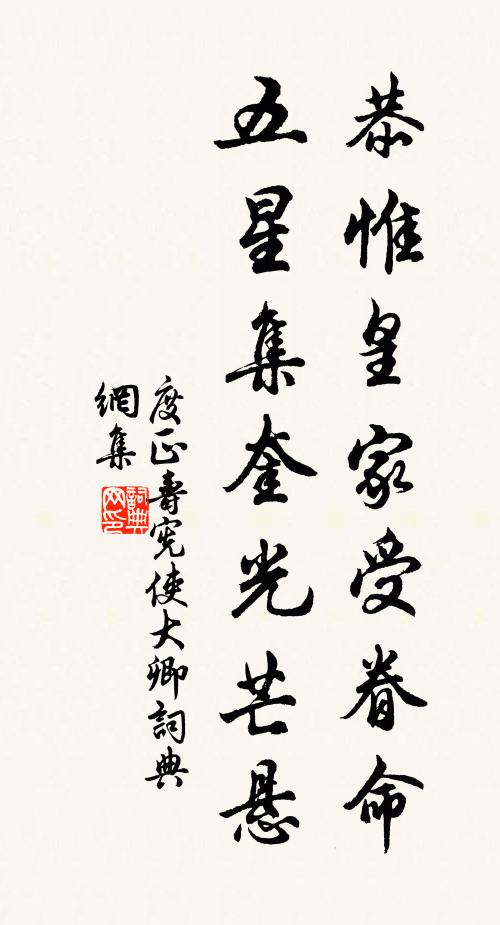 恭惟皇家受眷命
五星集奎光芒悬
度正壽宪使大卿詞典
網集
詞典网印